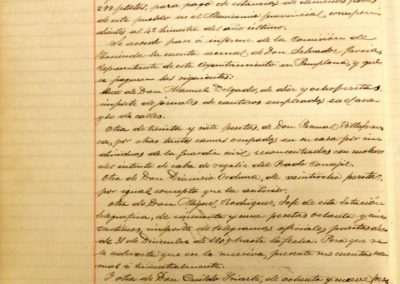 299 pesetas, para pago de estancias de dementes pobres
de este pueblo en el Manicomio provincial, correspon-
dientes al 4º trimestre del año último.
Se acordó pase á informe de la Comisión de
Hacienda la cuenta de Don Salvador
Representante de este Ayuntamiento en Pamplona, y que
se paguen las siguientes:
Una de Don Manuel Delgado, de diez y ocho pesetas,
importe de jornales de canteros empleados en el arre-
glo de calles.
Otra de treinta y siete pesetas, de Don Pascual Villafran-
ca, por otras tantas camas ocupadas en su casa por in-
dividuos de la guardia civil, reconcentrados con motivo
del intento de del
Otra de Don Dionisio Orduna, de veintiocho pesetas,
por igual concepto que la anterior.
Otra de Don Miguel Rodriguez, Jefe de esta Estación
telegráfica, de cincuenta y una pesetas ochenta y cinco
céntimos, importe de telegramas oficiales puestos des-
de 31 de Diciembre de 1909 hasta la fecha. Para que se
le advierta que en lo sucesivo, presente sus cuentas men-
sual ó trimestralmente.
Y otra de Don Iriarte, de ochenta y nueve pese-